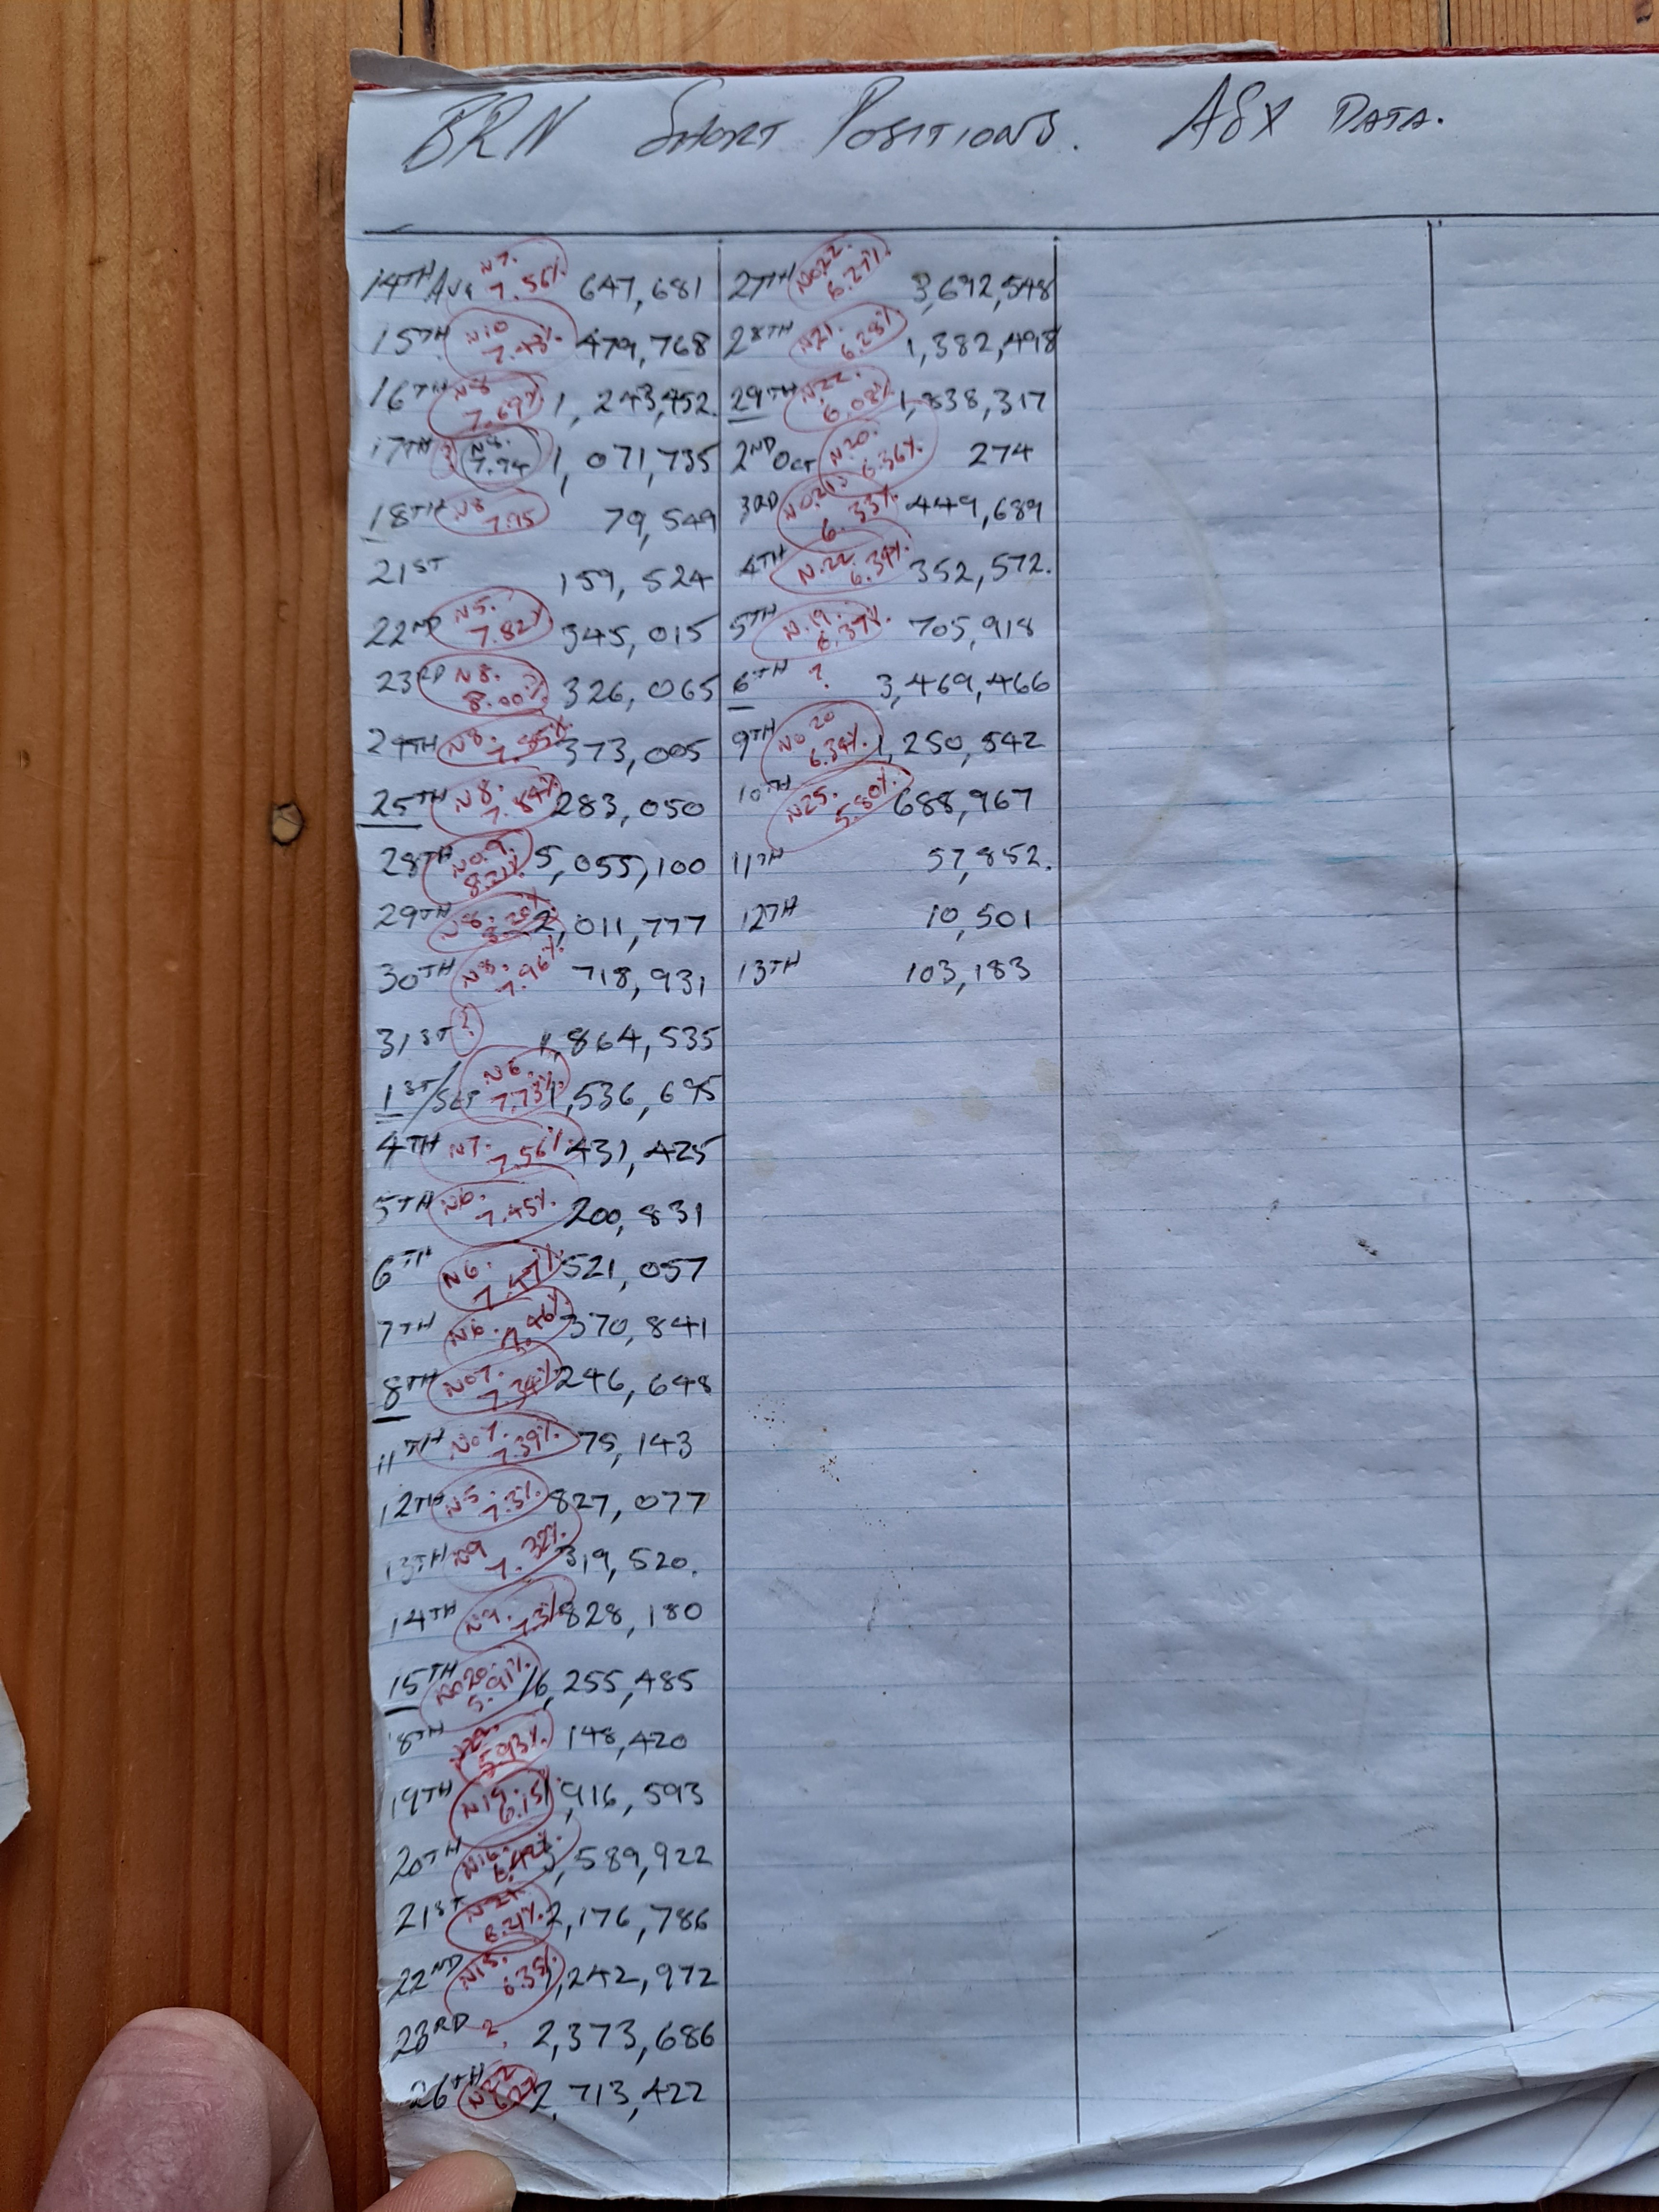 BRN SHORT POSITIONS. ASX DATA.
14TH AUG N7. 7.56% 647,681
15TH N10 7.43% 479,768
16TH N8 7.69% 1,243,452.
17TH ? N8. 7.74 1,071,735
18TH N8 7.75 79,549
21ST 159,524
22ND N5. 7.82% 345,015
23RD N8. 8.00% 326,065
24TH N8. 7.85% 373,005
25TH N8. 7.84% 283,050
28TH NO.9. 8.21% 5,055,100
29TH N8. 8.20% 2,011,777
30TH N8. 7.96% 718,931
31ST ? 1,864,535
1ST/SEP N6. 7.73% 1,536,695
4TH N7. 7.56% 431,425
5TH N6. 7.45% 200,831
6TH N6. 7.47% 521,057
7TH N6. 7.46% 370,841
8TH NO7. 7.34% 246,648
11TH NO7. 7.39% 75,143
12TH N5. 7.3% 827,077
13TH N9 7.32% 319,520.
14TH N9. 7.3% 828,180
15TH NO20. 5.91% 16,255,485
18TH 5.93% 148,420
19TH N19. 6.15% 1,916,593
20TH N16. 6.42% ,589,922
21ST N21. 6.21% 2,176,786
22ND 6.35% 1,242,972
23RD ? 2,373,686
26TH N22 6.27 2,713,422
27TH NO22. 6.27% 3,692,548
28TH N21. 6.28% 1,382,498
29TH N.22. 6.08% 1,838,317
2ND OCT N20. 6.36% 274
3RD NO.21. 6.33% 449,689
4TH N.22. 6.34% 352,572.
5TH N.19. 6.37% 705,918
6TH ? 3,469,466
9TH NO 20 6.34% 1,250,542
10TH N25. 5.80% 688,967
11TH 57,852.
12TH 10,501
13TH 103,183